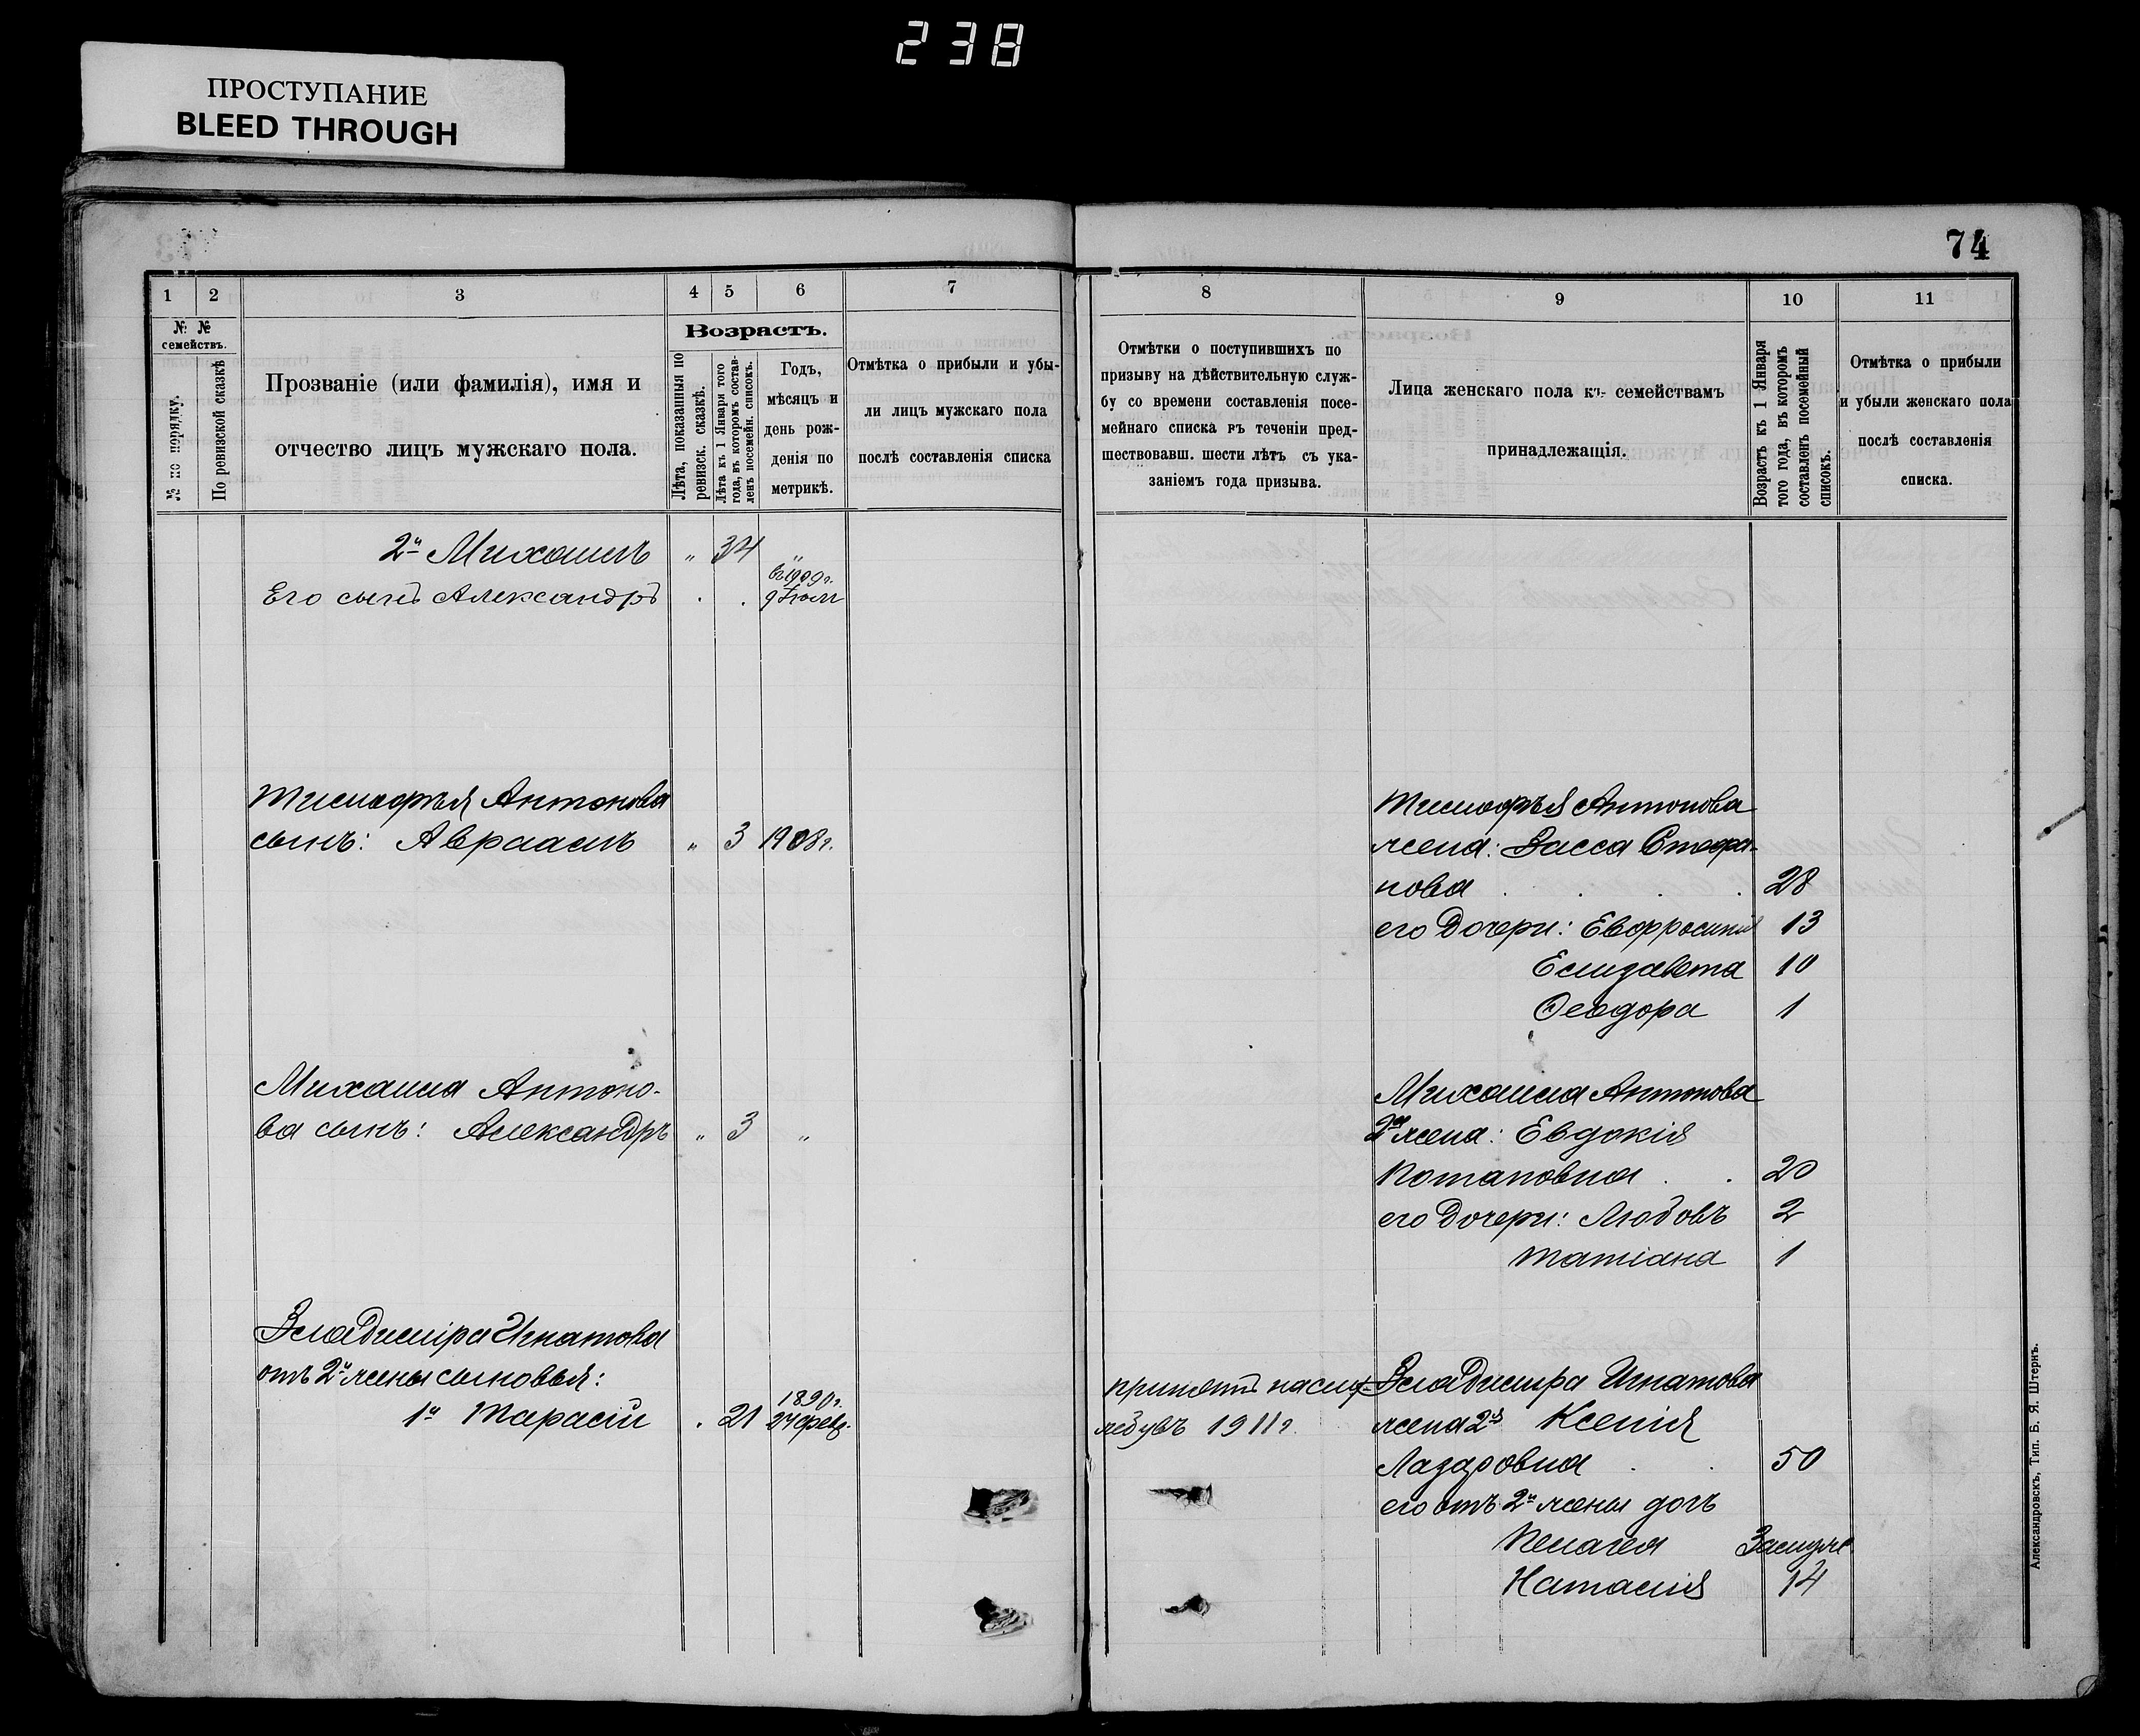 238
ПРОСТУПАНИЕ
BLEED THROUGH
74
1 2 3 4 5 6 7
№ № семействъ.
№ по порядку.
По ревизской сказкѣ
Прозваніе (или фамилія), имя и
отчество лицъ мужскаго пола.
Возрастъ.
Лѣта, показанныя по
ревизск. сказкѣ.
Лѣта къ 1 Января того
года, въ которомъ состав-
ленъ посемейн. списокъ.
Годъ,
мѣсяцъ и
день рож-
денія по
метрикѣ.
Отмѣтка о прибыли и убы-
ли лицъ мужскаго пола
послѣ составленія списка
2й Михаилъ " 34 "
Его сынъ Александръ . . въ 1909г.
9 Июля
Тимофѣя Антонова
сынъ: Авраамъ " 3 1908г.
Михаила Антоно-
ва сынъ: Александръ " 3 "
Владиміра Игнатова
отъ 2й жены сыновья:
1й Тарасій . 21 1890г.
24 февр.
8 9 10 11
Отмѣтки о поступившихъ по
призыву на дѣйствительную служ-
бу со времени составленія посе-
мейнаго списка въ теченіи пред-
шествовавш. шести лѣтъ съ ука-
заніемъ года призыва.
Лица женскаго пола къ семействамъ
принадлежащія.
Возрастъ къ 1 Января
того года, въ которомъ
составленъ посемейный
списокъ.
Отмѣтка о прибыли
и убыли женскаго пола
послѣ составленія
списка.
Тимофѣя Антонова
жена: Васса Стефа-
нова . . . . 28
его дочери: Евфросинія 13
Елизавета 10
Ѳеодора 1
Михаила Антонова
2я жена: Евдокія
Потаповна . . 20
его дочери: Любовь 2
Татіана 1
принятъ на слу-
жбу въ 1911г.
Владиміра Игнатова
жена 2я Ксенія
Лазаровна . . 50
его отъ 2й жены дочь
Пелагея Замуже
Наталія 14
Александровскъ, Тип. Б. Я. Штернъ.